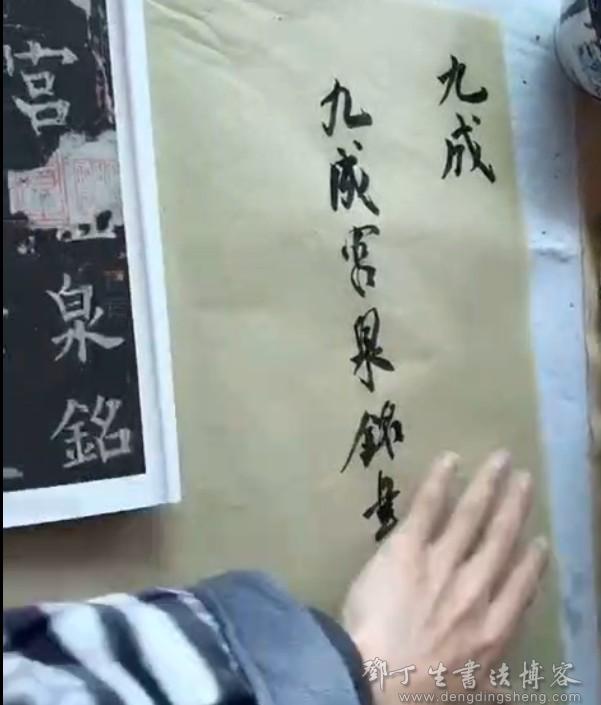 九成
九成宮泉銘書
宮
泉銘
鄧丁生書法博客
www.dengdingsheng.com